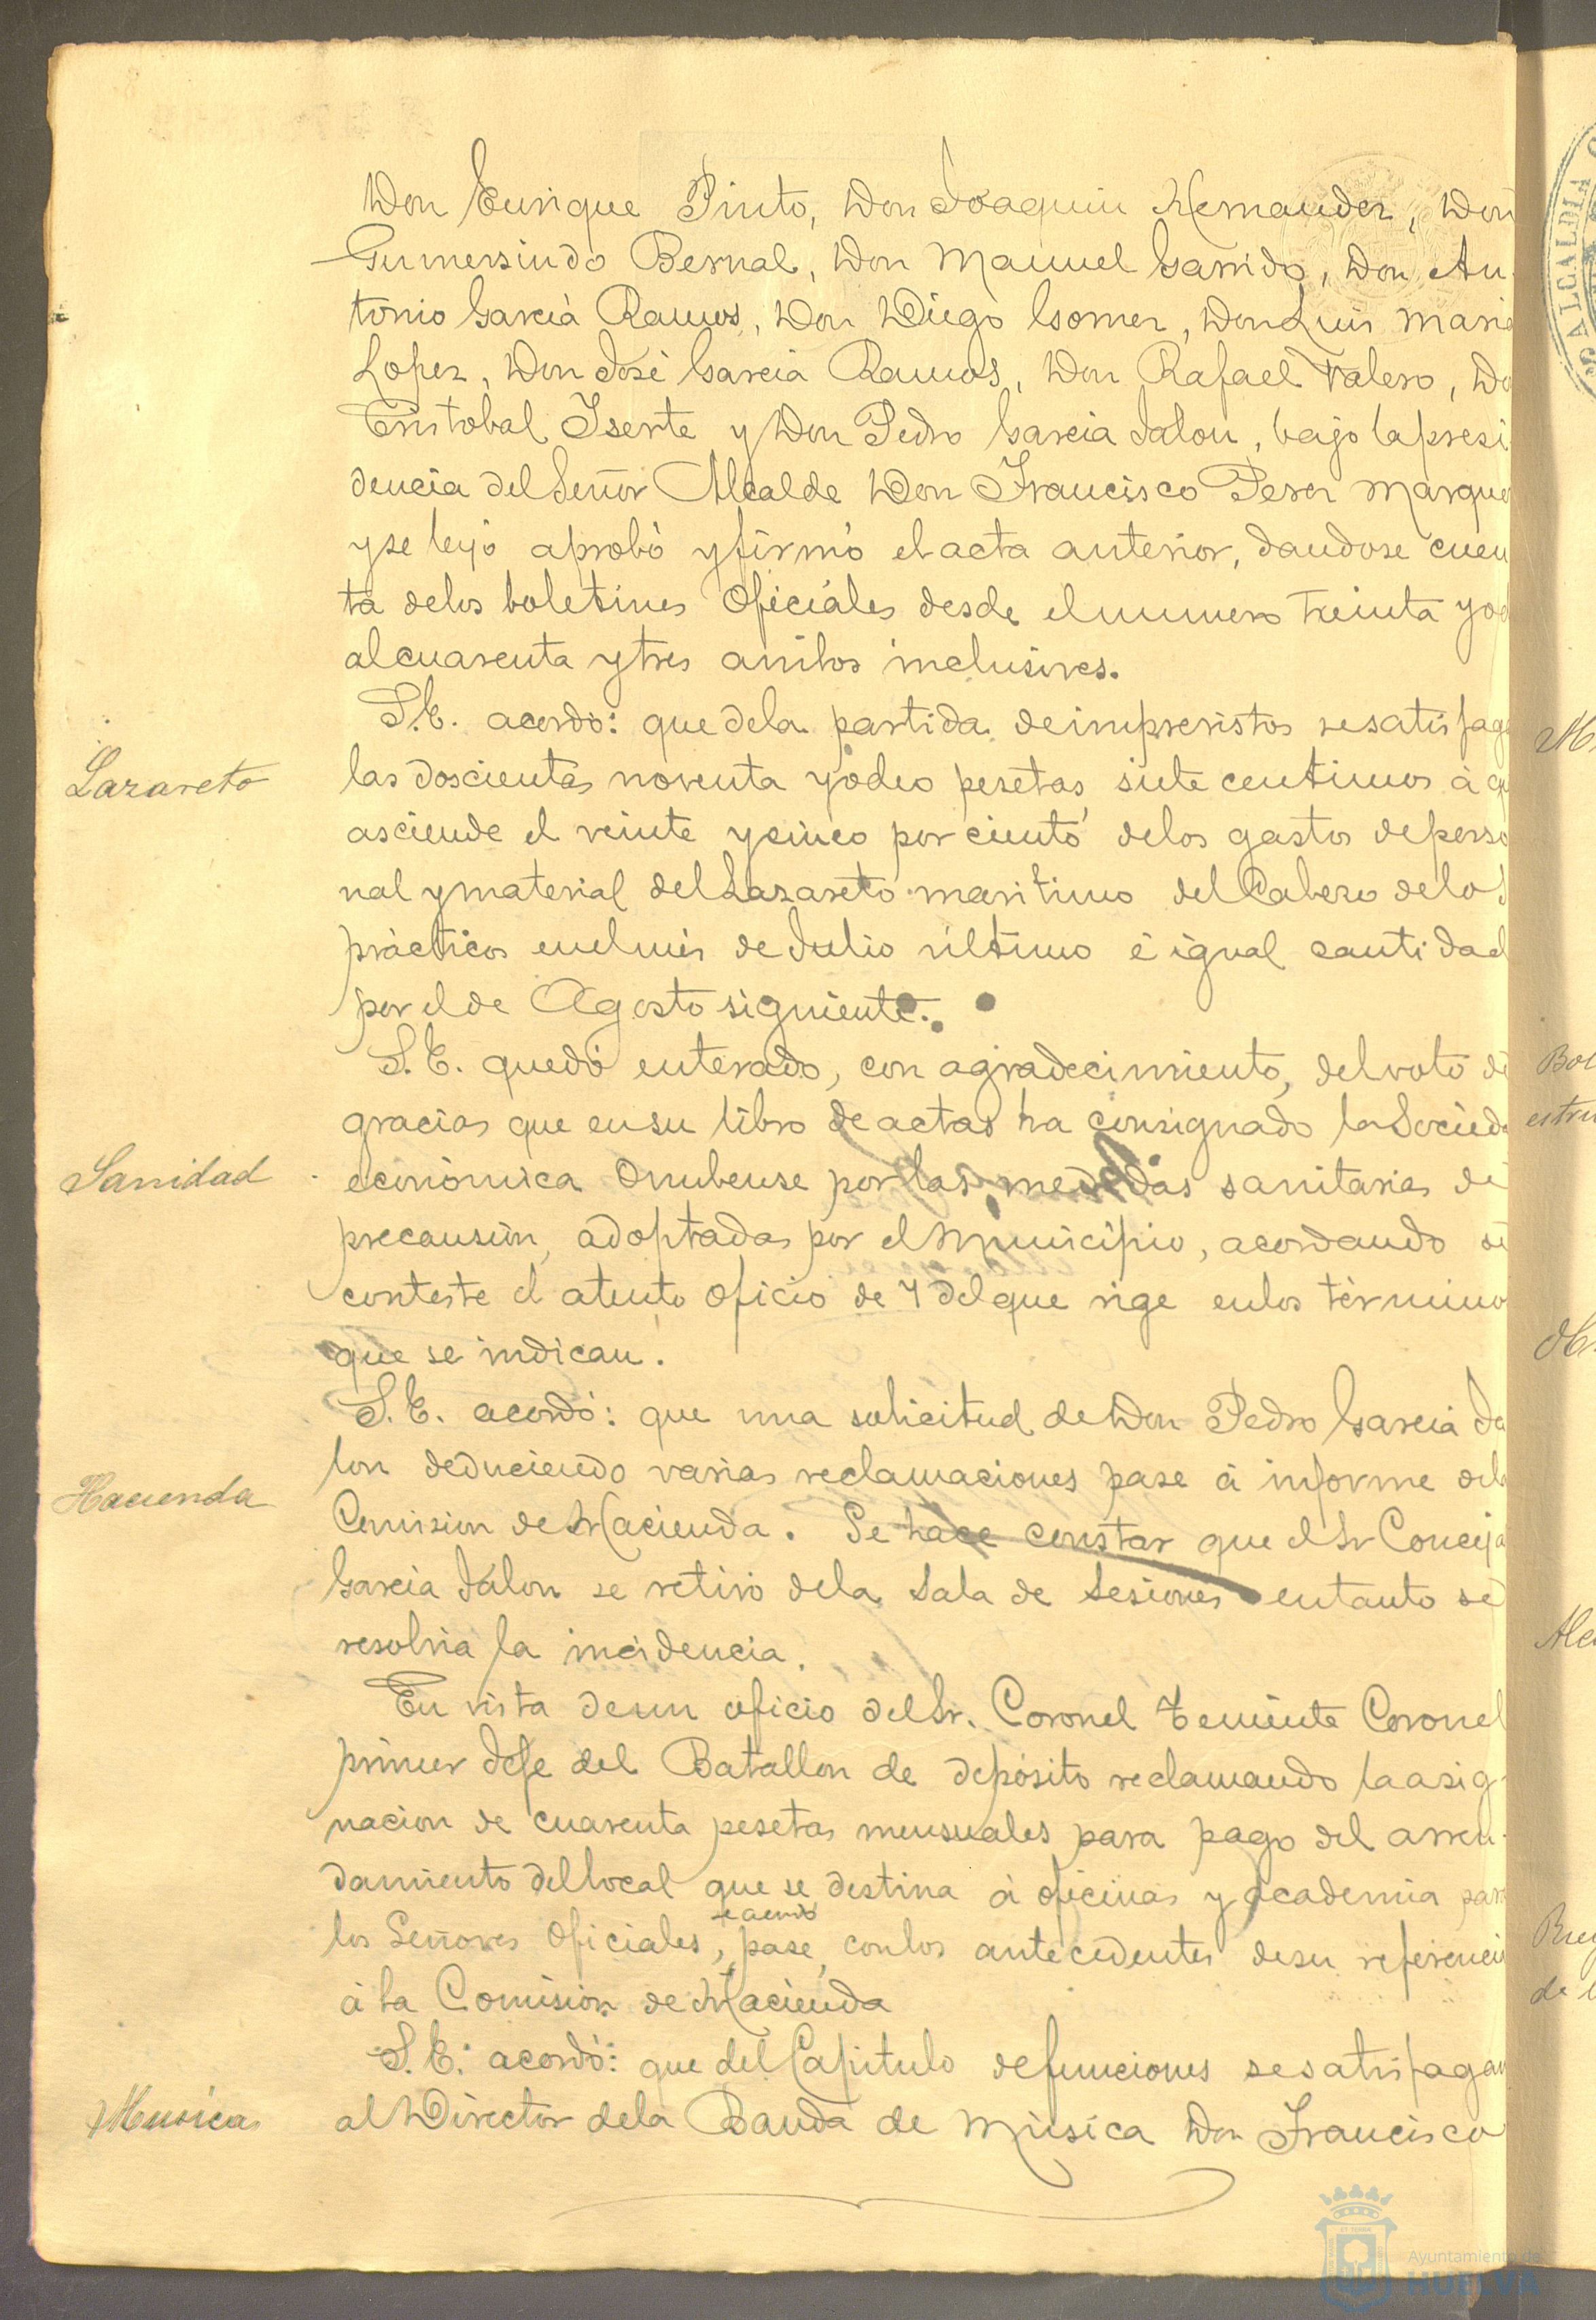 Don Enrique Pinto, Don Joaquin Hernandez, Don
Gumersindo Bernal, Don Manuel Garrido, Don An-
tonio Garcia Ramos, Don Diego Gomez, Don Luis Maria
Lopez, Don José Garcia Ramos, Don Rafael Valero, Do
Cristobal Iserte y Don Pedro Garcia Jalon, bajo la presi
dencia del Señor Alcalde Don Francisco Perez Marque
y se leyó aprobó y firmó el acta anterior, dandose cuen
ta de los boletines Oficiales desde el numero treinta y oc
al cuarenta y tres ambos inclusives.
S.E. acordó: que de la partida de imprevistos se satisfaga
Lazareto
las doscientas noventa y ocho pesetas, siete centimos á qu
asciende el veinte y cinco por ciento de los gastos de perso
nal y material del Lazareto maritimo del Cabezo de los
prácticos en el mes de Julio último é igual cantidad
por el de Agosto siguiente.
S.E. quedó enterado, con agradecimiento, del voto de
gracias que en su libro de actas ha consignado la Socieda
Sanidad
económica Onubense por las medidas sanitarias de
precausión, adoptadas por el Municipio, acordando se
conteste el atento oficio de 7 del que rige en los término
que se indican.
S.E. acordó: que una solicitud de Don Pedro Garcia Ja
Hacienda
lon deduciendo varias reclamaciones pase á informe de la
Comision de Hacienda. Se hace constar que el Sr Conceja
Garcia Jalon se retiró de la Sala de Sesiones en tanto se
resolvia la incidencia.
En vista de un oficio del Sr. Coronel Teniente Coronel
primer Jefe del Batallon de depósito reclamando la asig-
nacion de cuarenta pesetas mensuales para pago del arren-
damiento del local que se destina á oficinas y academia para
se acordó
los Señores Oficiales, pase, con los antecedentes de su referencia
á la Comision de Hacienda
S.E. acordó: que del Capitulo de funciones se satisfagan
Musica
al Director de la Banda de Música Don Francisco
ALCALDIA
Ayuntamiento de
HUELVA